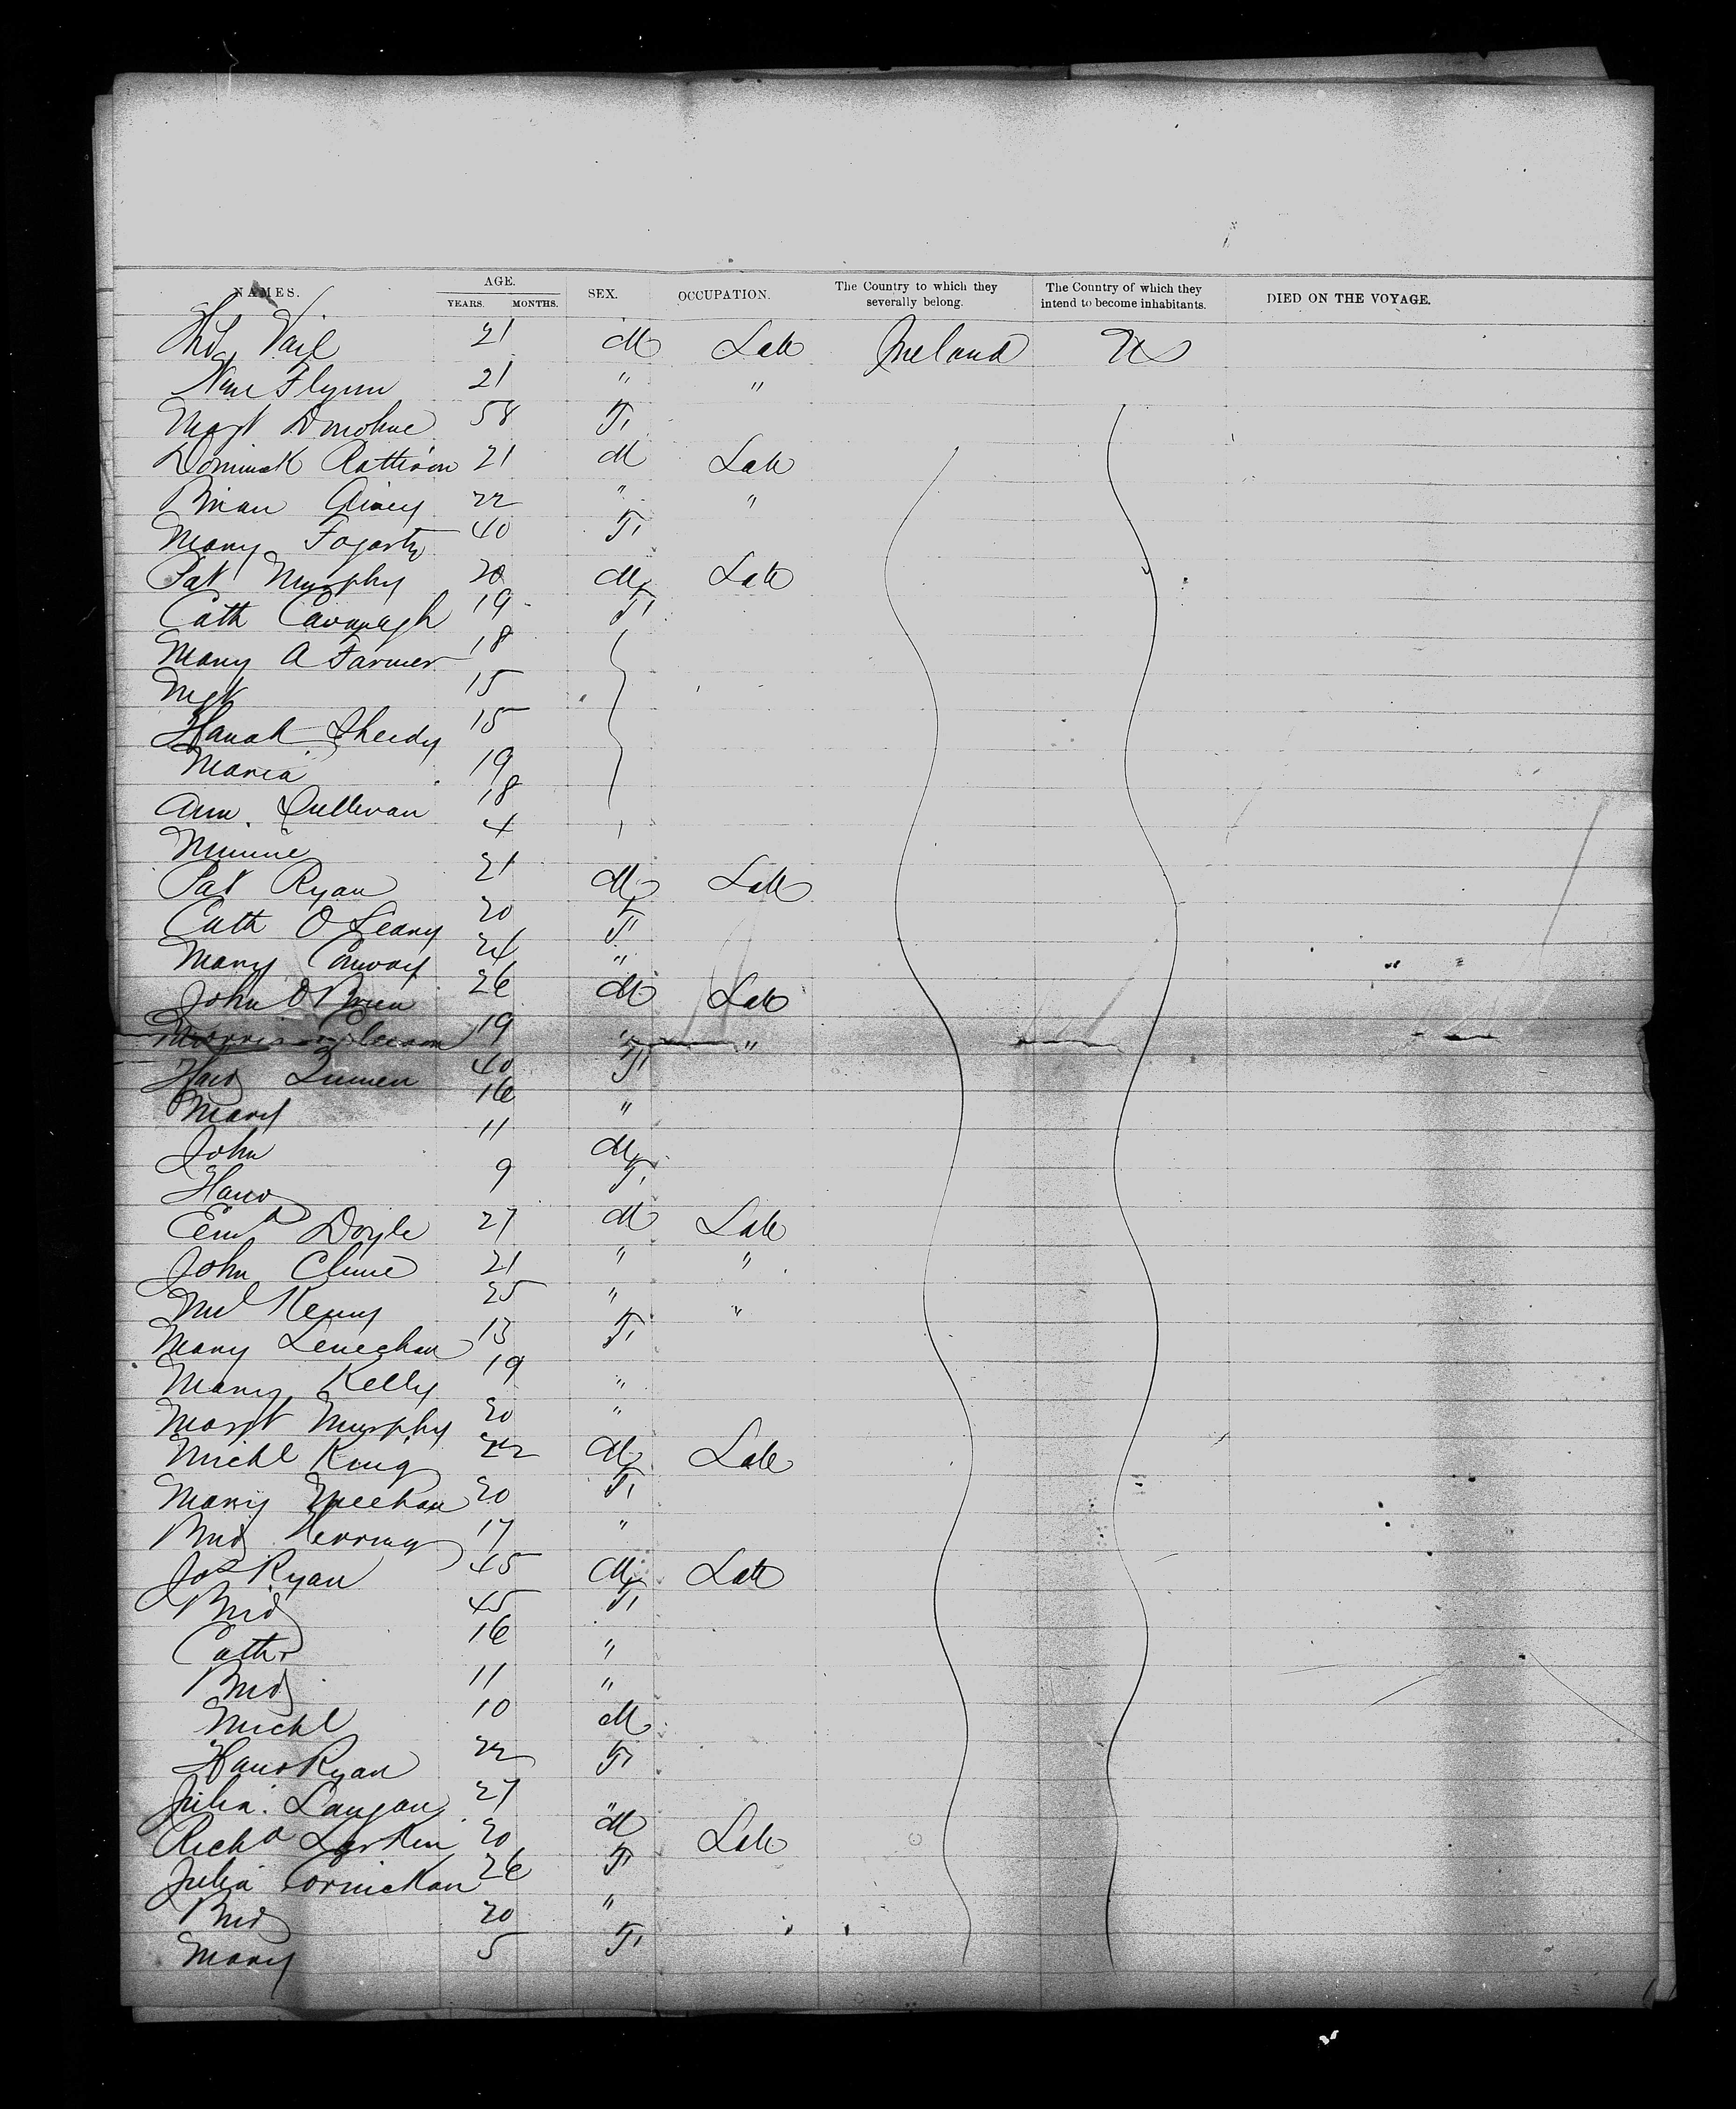 NAMES. AGE. YEARS. MONTHS. SEX. OCCUPATION. The Country to which they severally belong. The Country of which they intend to become inhabitants. DIED ON THE VOYAGE.
Vail 21 M Lab Ireland US
Flynn 21 " "
Margt Donohue 58 F
Dominick 21 M Lab
Brian 22 " "
Mary Fogarty 40 F
Pat Murphy 20 M Lab
Cath Cavanagh 19 F
Mary A Farmer 18
Mgt 15
Hanah Sheedy 15
Maria 19
Ann Sullivan 18
Minnie 4 "
Pat Ryan 21 M Lab
Cath O Leary 20 F
Mary Conway 24 "
John O Brien 26 M Lab
Morris Gleeson 19 " "
40 F
Mary 16 "
John 11 M
9 F
Doyle 27 M Lab
John Clune 21 " "
Kenny 25 " "
Mary Leneghan 13 F
Mary Kelly 19 "
Margt Murphy 20 "
Michl King 22 M Lab
Mary Meehan 20 F
Brid Herring 17 "
Jos Ryan 45 M Lab
Brid 45 F
Cath 16 "
Brid 11 "
Michl 10 M
Ryan 22 F
Julia Langan 27 "
Richd Larkin 20 M Lab
Julia Cormickan 26 F
Brid 20 "
Mary 5 F